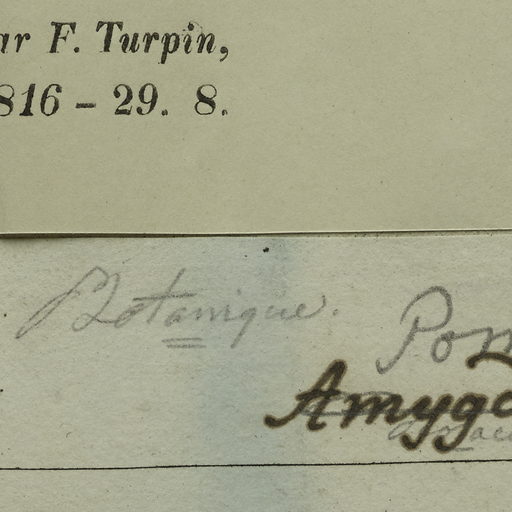 ar F. Turpin,
816 – 29. 8.
Botanique.
Pom
Amygd